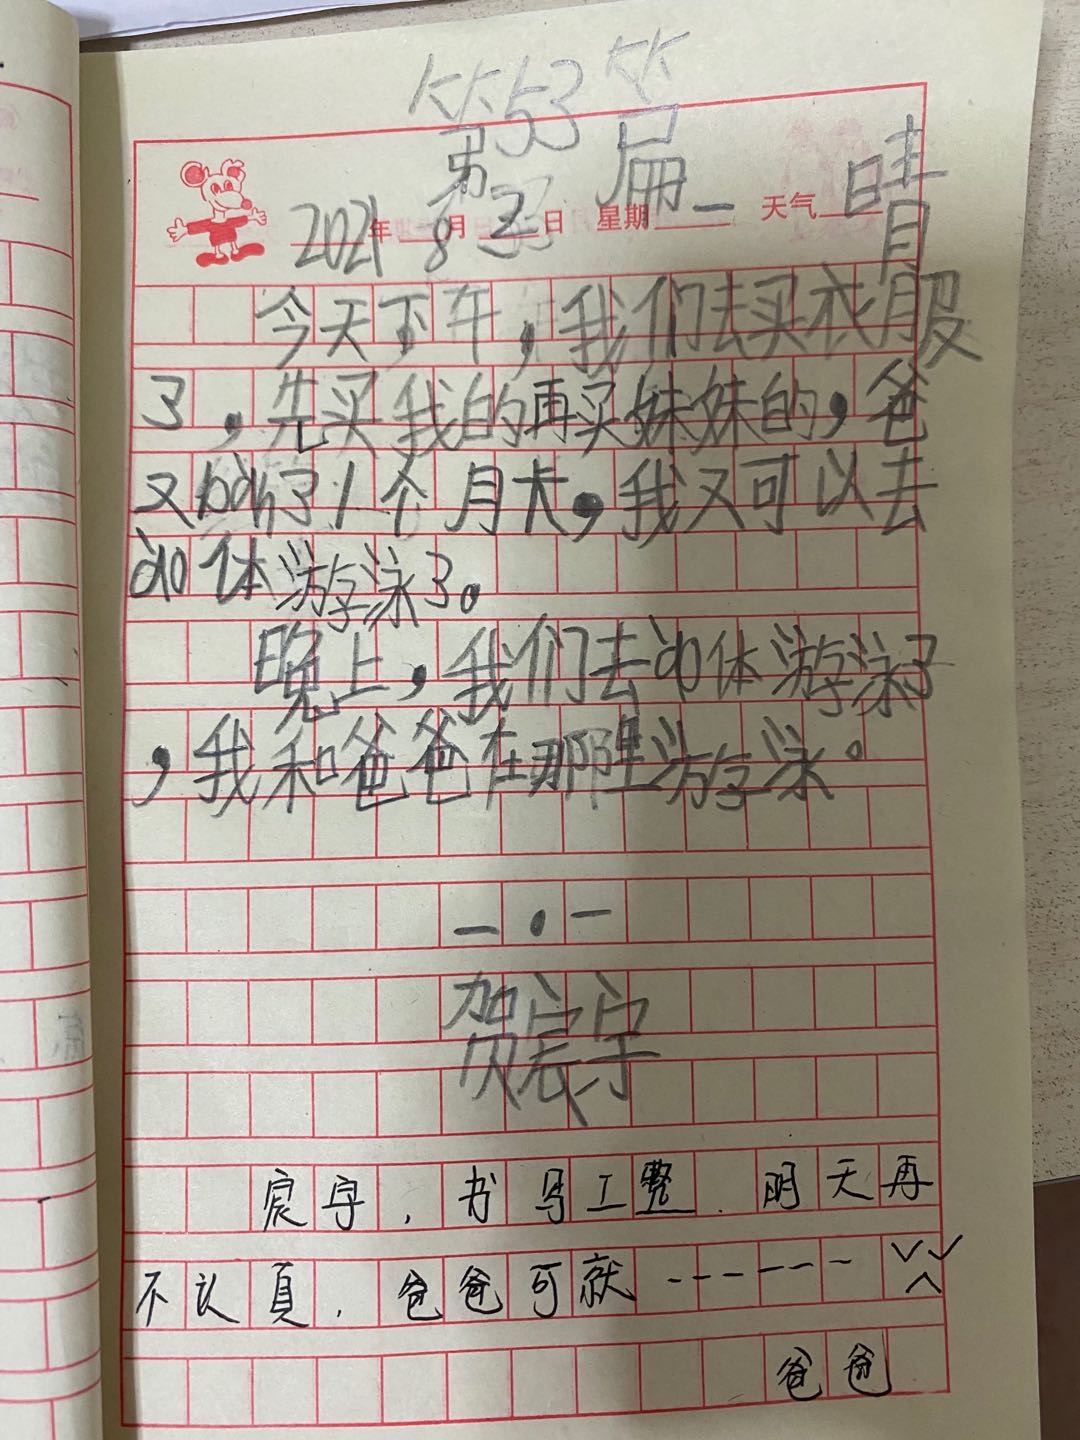 第53篇
2021年8月2日 星期一 天气晴
今天下午，我们去买衣服
了，先买我的再买妹妹的，爸
又bàn了1个月卡，我又可以去
ào体游泳了。
晚上，我们去ào体游泳了
，我和爸爸在那里游泳。
—·—
贺宸宇
宸宇，书写工整．明天再
不认真，爸爸可就------
爸爸